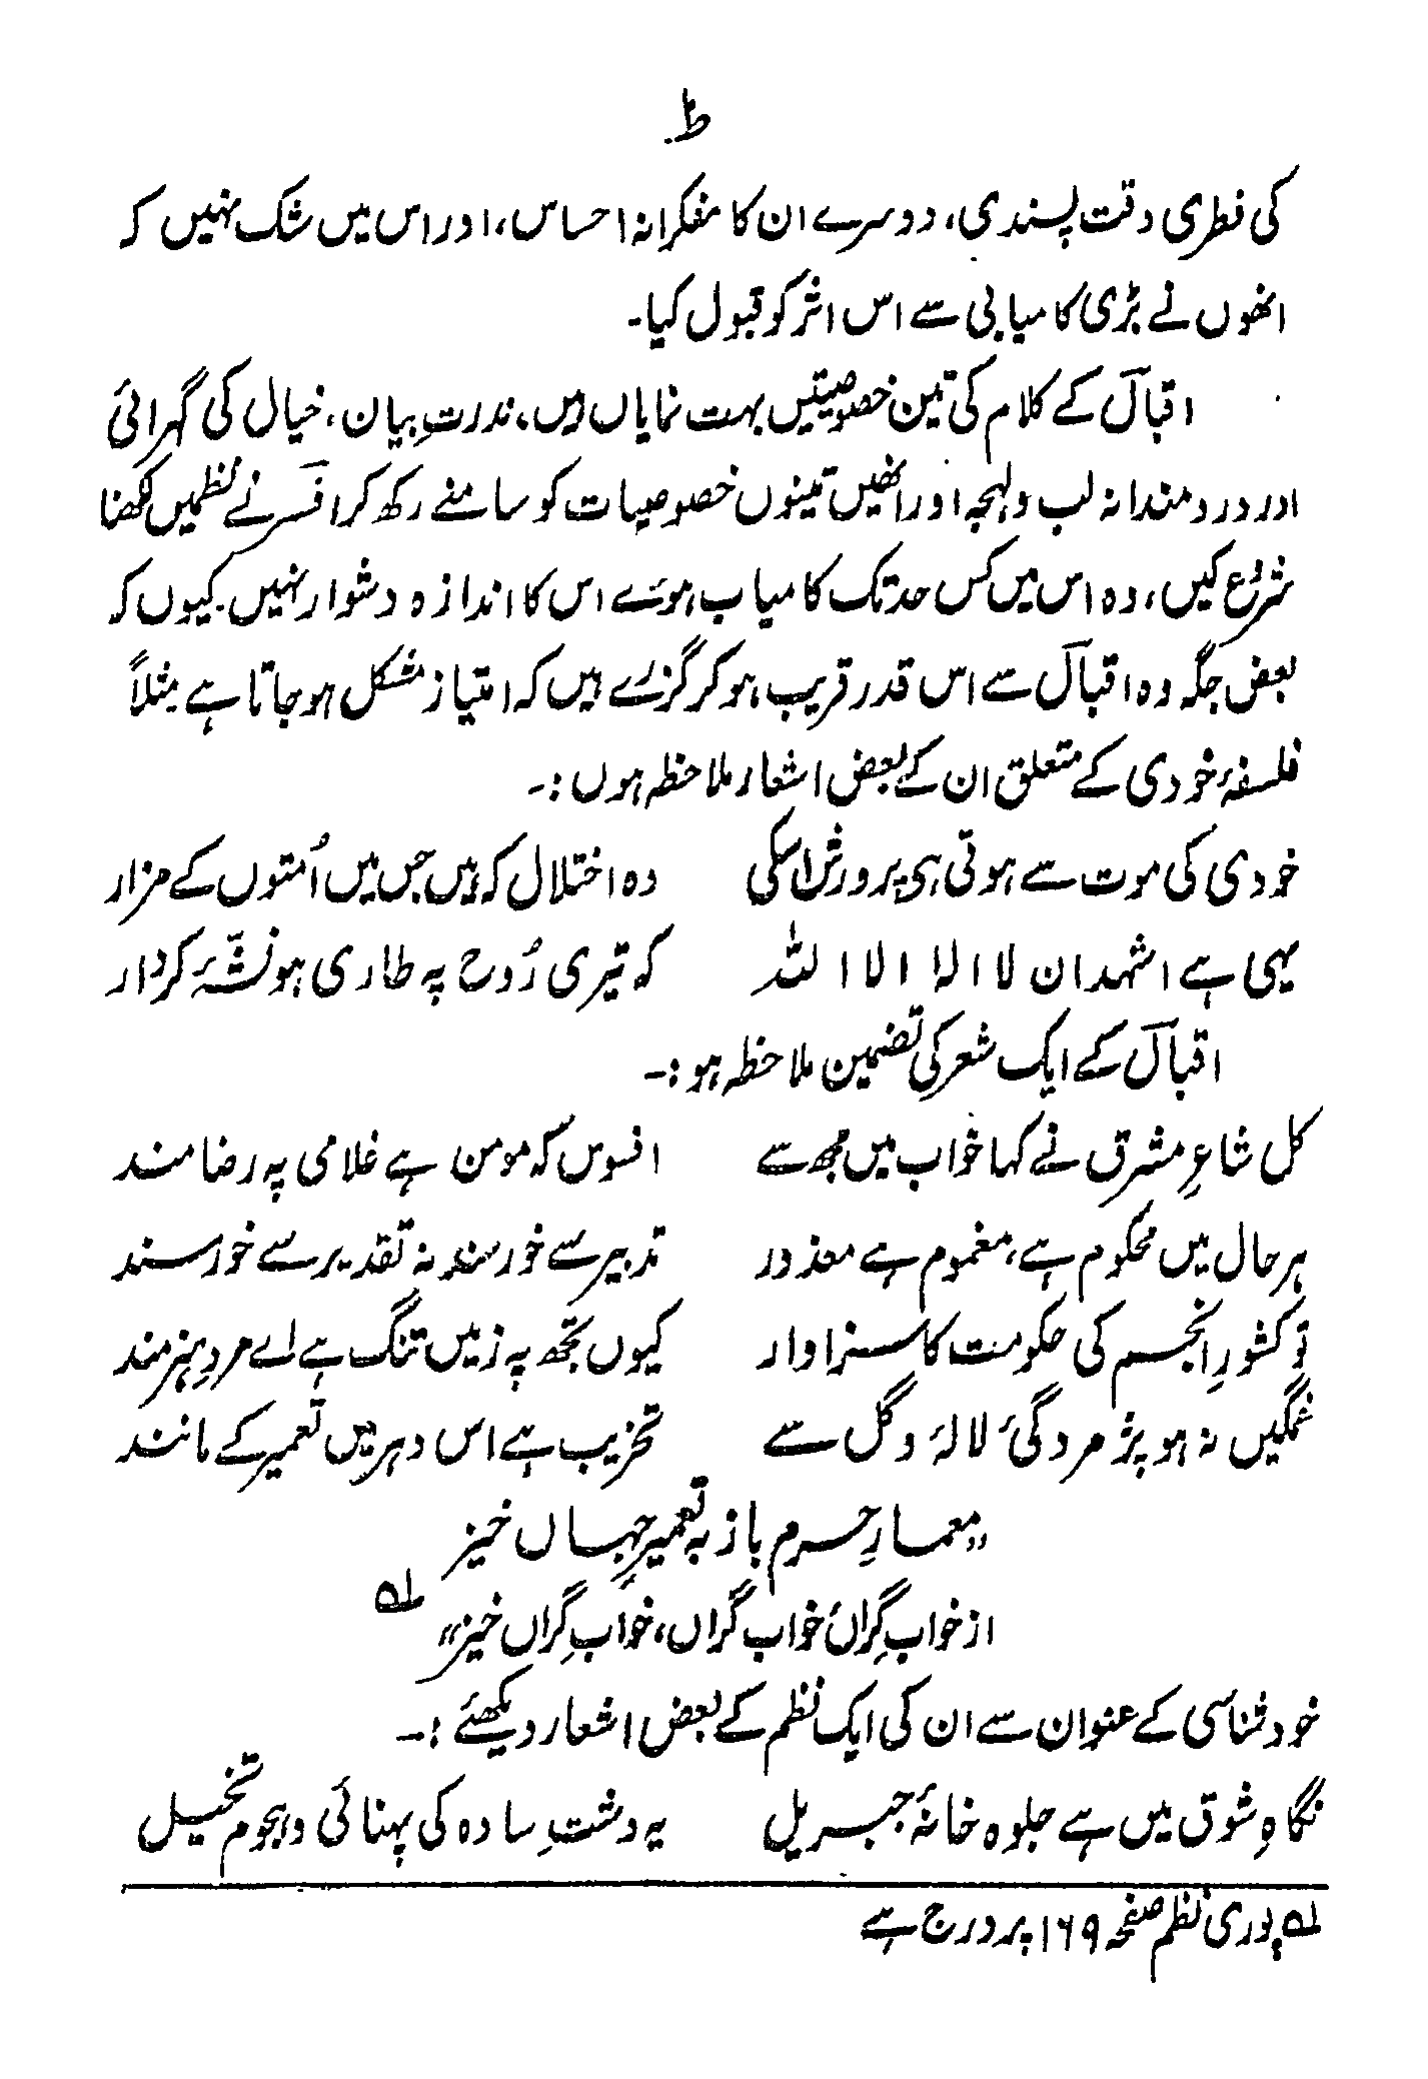 ط
کی فطری دقت پسندی، دوسرے ان کا مفکرانہ احساس، اور اس میں شک نہیں کہ
انھوں نے بڑی کامیابی سے اس اثر کو قبول کیا۔
اقبالؔ کے کلام کی تین خصوصیتیں بہت نمایاں ہیں، ندرتِ بیان، خیال کی گہرائی
اور دردمندانہ لب ولہجہ اور انھیں تینوں خصوصیات کو سامنے رکھ کر افسرؔ نے نظمیں لکھنا
شروع کیں، وہ اس میں کس حد تک کامیاب ہوئے اس کا اندازہ دشوار نہیں۔ کیوں کہ
بعض جگہ وہ اقبالؔ سے اس قدر قریب ہو کر گزرے ہیں کہ امتیاز مشکل ہو جاتا ہے مثلاً
فلسفۂ خودی کے متعلق ان کے بعض اشعار ملاحظہ ہوں :۔
خودی کی موت سے ہوتی ہی پرورش اسکی وہ اختلال کہ ہیں جس میں اُمتوں کے مزار
یہی ہے اشہدان لا الٰہ الا اللہ کہ تیری رُوح پہ طاری ہو نشّۂ کردار
اقبالؔ کے ایک شعر کی تضمین ملاحظہ ہو :۔
کل شاعرِ مشرق نے کہا خواب میں مجھ سے افسوس کہ مومن ہے غلامی پہ رضامند
ہر حال میں محکوم ہے، مغموم ہے معذور تدبیر سے خورسند نہ تقدیر سے خورسند
تو کشورِ انجم کی حکومت کا سزاوار کیوں تجھ پہ زمیں تنگ ہے اے مردِ ہنرمند
غمگیں نہ ہو پژمردگیٔ لالہ و گل سے تخریب ہے اس دہر میں تعمیر کے مانند
"معمارِ حرم باز بہ تعمیرِ جہاں خیز
از خوابِ گراں خواب گراں، خوابِ گراں خیز" ؎۱
خود شناسی کے عنوان سے ان کی ایک نظم کے بعض اشعار دیکھئے :۔
نگاہِ شوق میں ہے جلوہ خانۂ جبریل یہ دشتِ سادہ کی پہنائی و ہجوم تخیل
؎۱ پوری نظم صفحہ ۱۶۹ پر درج ہے